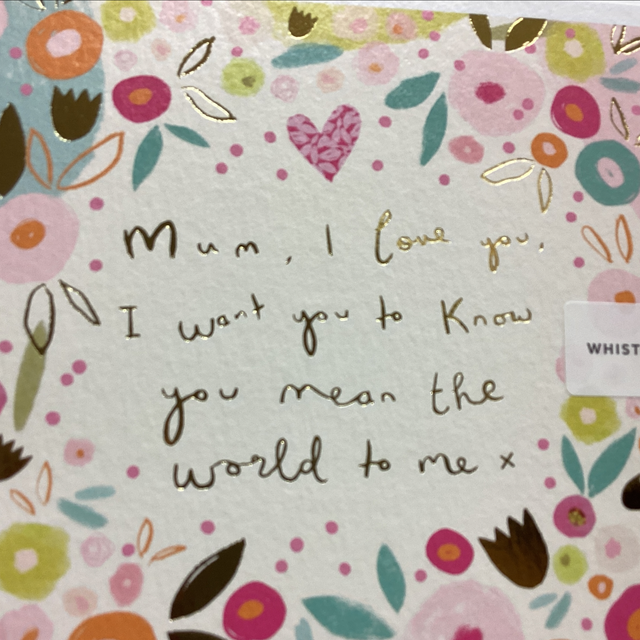 Mum, I love you,
I want you to know
you mean the
world to me x
WHIST